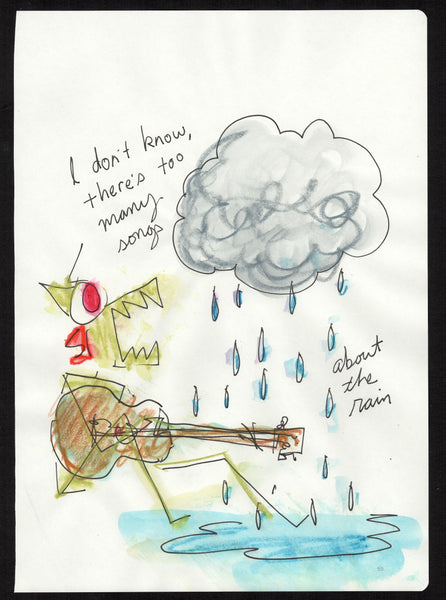 I don't know,
there's too
many
songs
about
the
rain